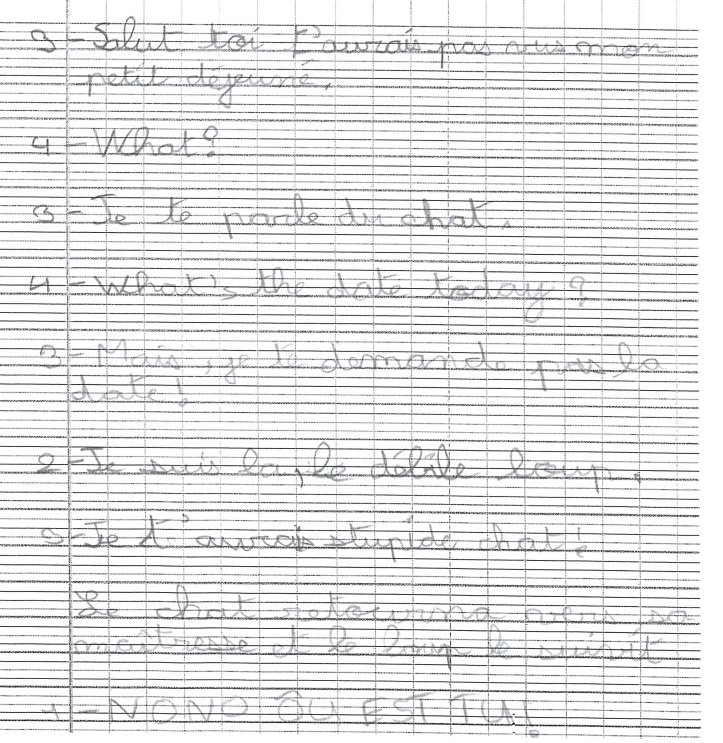 3-Salut toi t'aurais pas vus mon
petit déjeuné.
4-What?
3-Je te parle du chat.
4-What's the date today?
3-Mais, je te demande pas la
date!
2-Je suis la, le débile loup.
3-Je t'aurais stupide chat!
Le chat retourna vers sa
maîtresse et le loup le suivit
1-NONO OU EST TU!